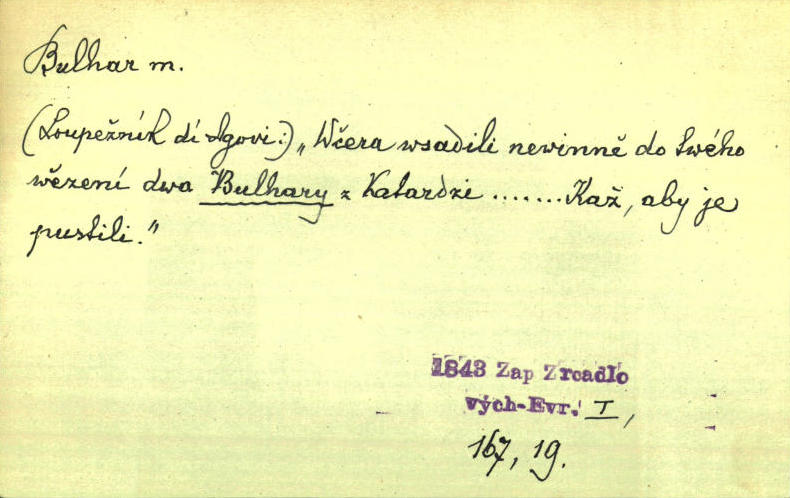 Bulhar m.
(Loupežník dí Agovi:) „Wčera wsadili newinně do twého
wězení dwa Bulhary z Katardzi ....... Kaž, aby je
pustili."
1843 Zap Zrcadlo
vých-Evr. I,
167, 19.